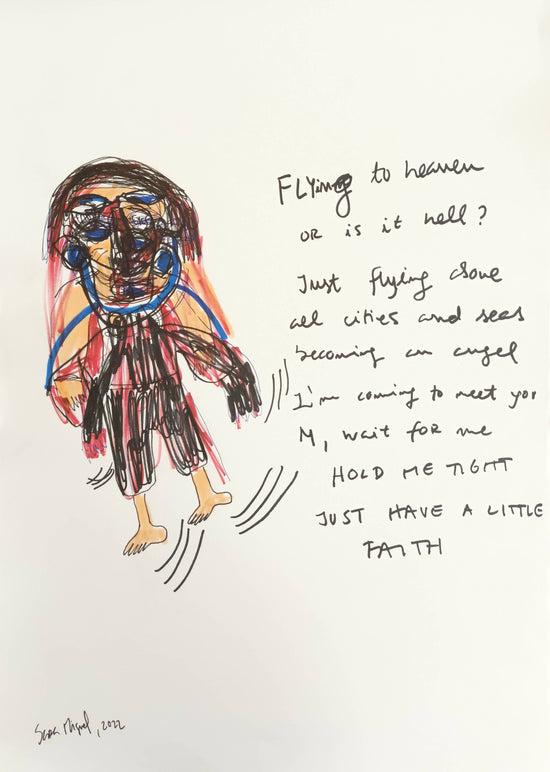 FLYing to heaven
or is it hell?
Just flying above
all cities and seas
becoming an angel
I'm coming to meet you
M, wait for me
HOLD ME TIGHT
JUST HAVE A LITTLE
FAITH
, 2022